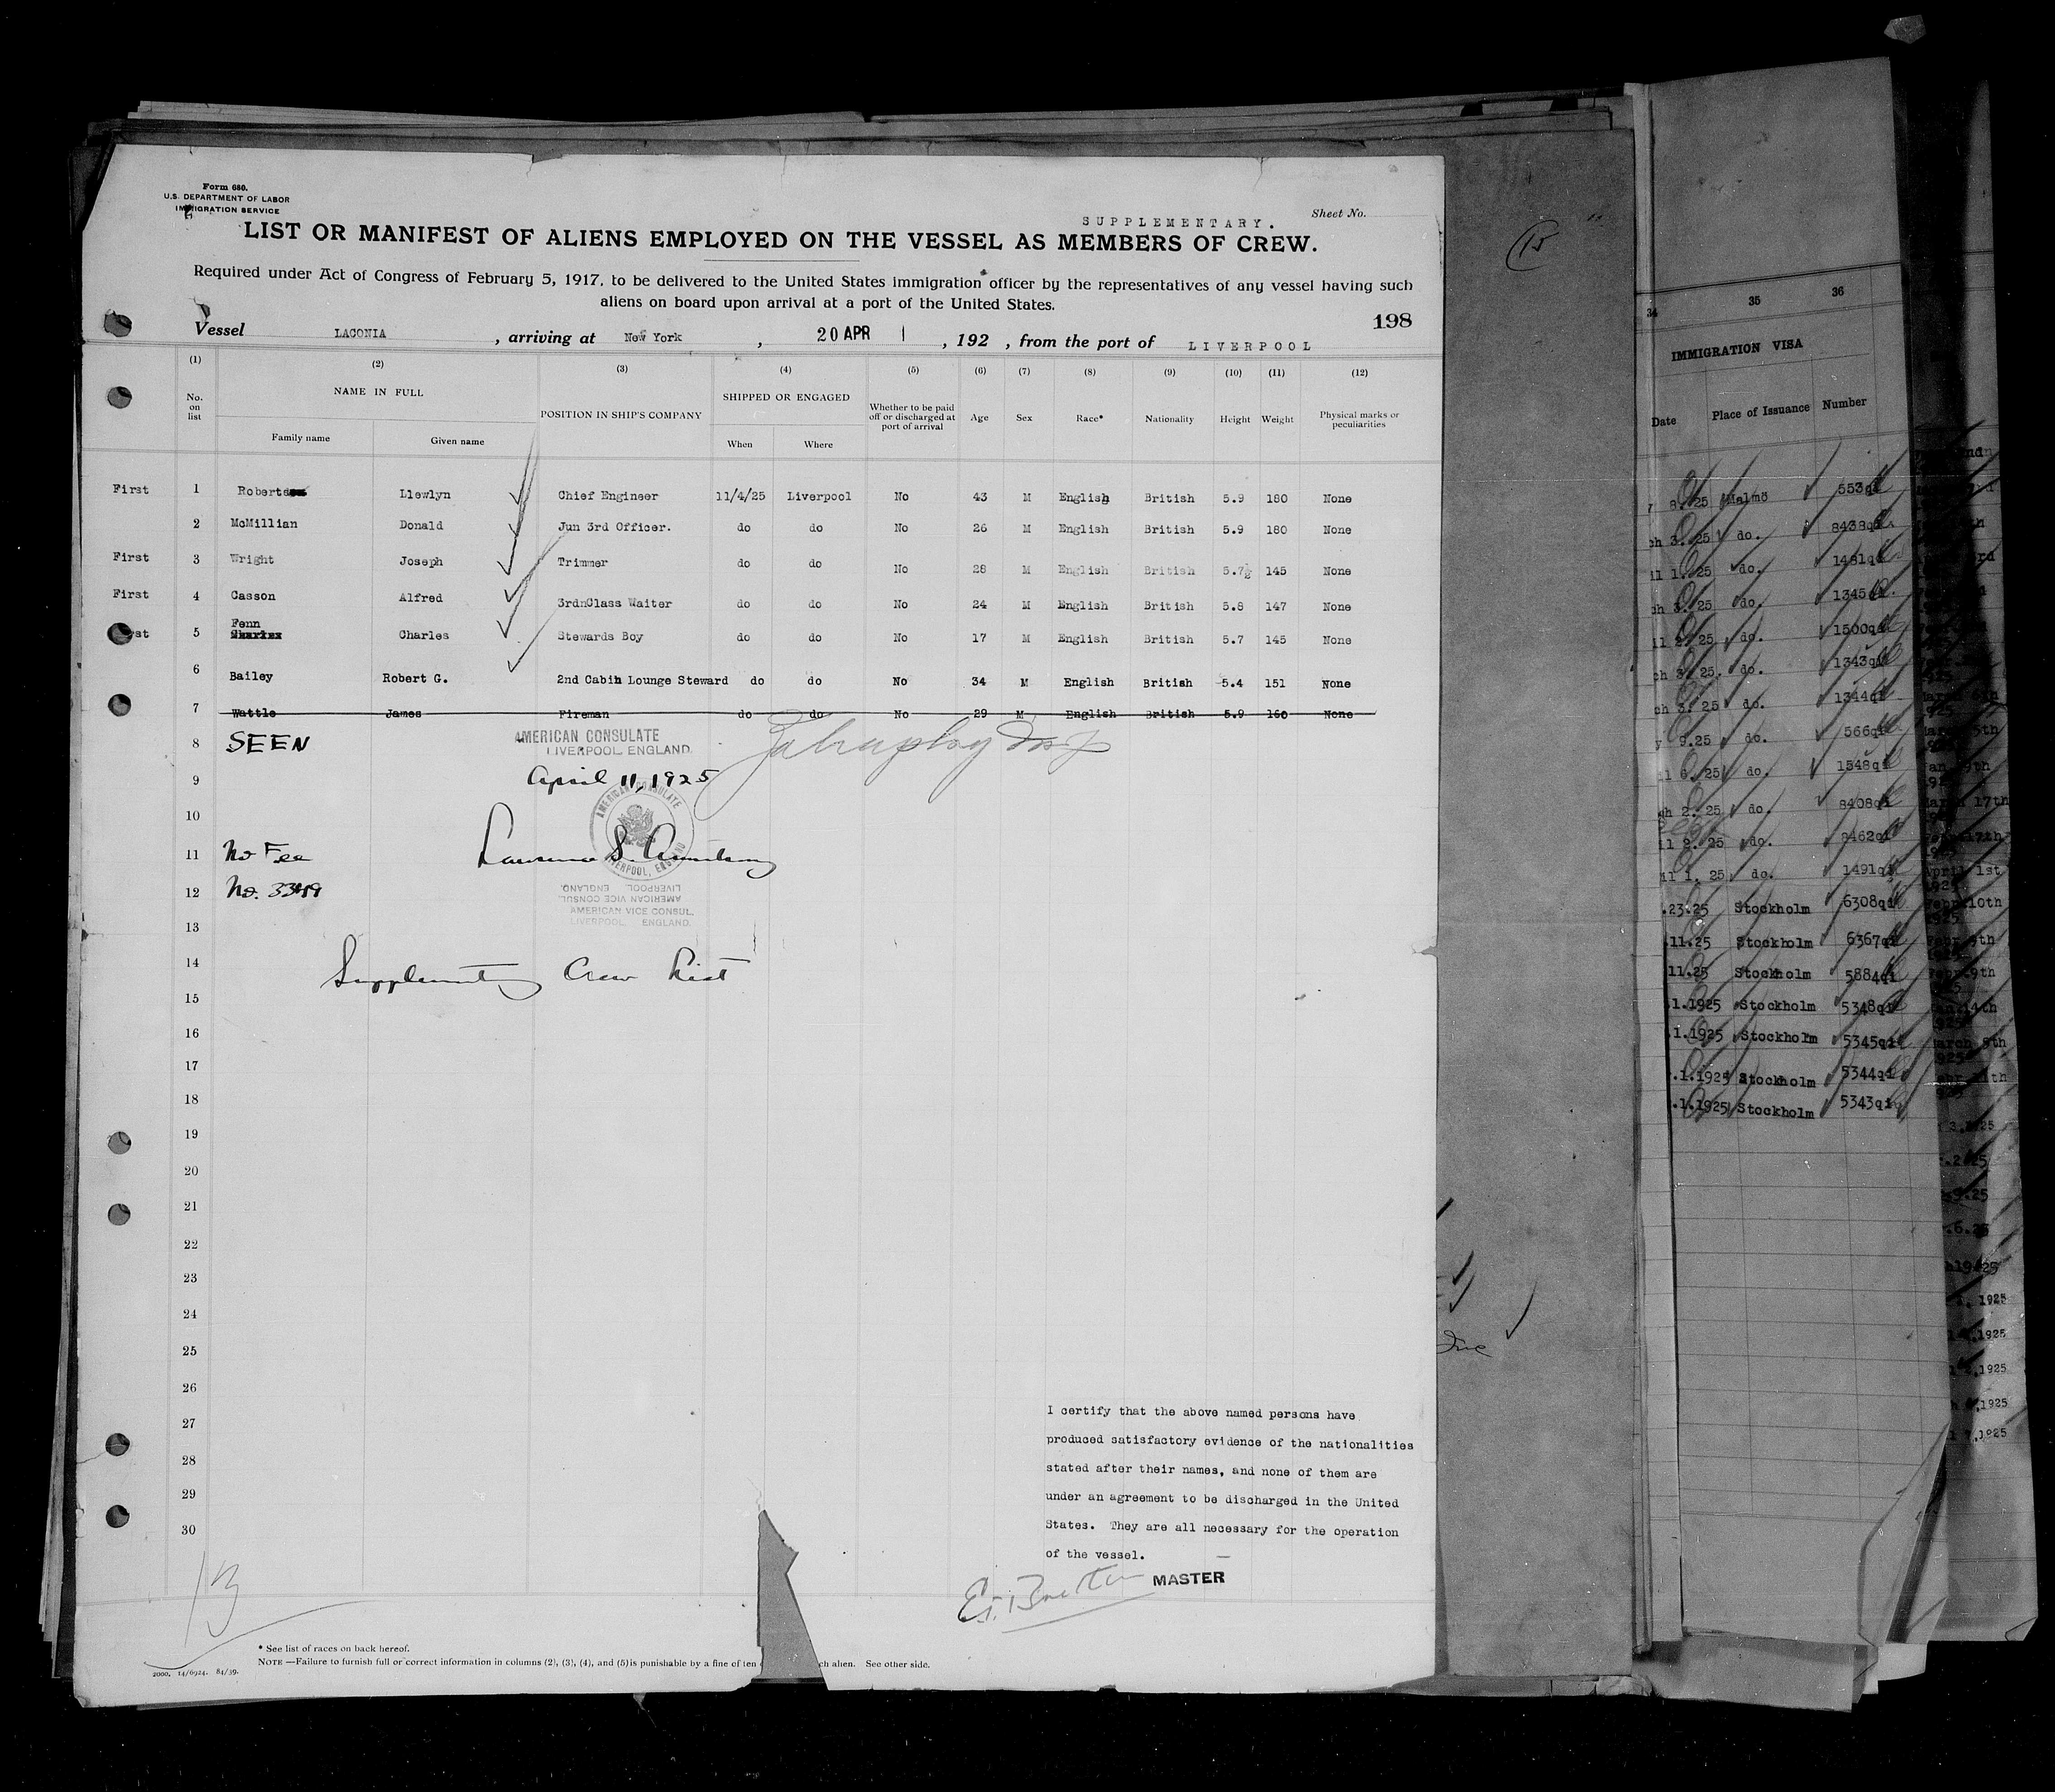 Form 680.
U.S. DEPARTMENT OF LABOR
IMMIGRATION SERVICE
SUPPLEMENTARY.
Sheet No.
LIST OR MANIFEST OF ALIENS EMPLOYED ON THE VESSEL AS MEMBERS OF CREW.
Required under Act of Congress of February 5, 1917, to be delivered to the United States immigration officer by the representatives of any vessel having such
aliens on board upon arrival at a port of the United States.
198
Vessel LACONIA , arriving at New York , 20 APR , 192 , from the port of LIVERPOOL
(1) (2) (3) (4) (5) (6) (7) (8) (9) (10) (11) (12)
No. on list NAME IN FULL POSITION IN SHIP'S COMPANY SHIPPED OR ENGAGED Whether to be paid off or discharged at port of arrival Age Sex Race* Nationality Height Weight Physical marks or peculiarities
Family name Given name When Where
First 1 Roberts Llewlyn Chief Engineer 11/4/25 Liverpool No 43 M English British 5.9 180 None
2 McMillian Donald Jun 3rd Officer. do do No 26 M English British 5.9 180 None
First 3 Wright Joseph Trimmer do do No 28 M English British 5.7½ 145 None
First 4 Casson Alfred 3rdnClass Waiter do do No 24 M English British 5.8 147 None
st 5 Fenn Charles Stewards Boy do do No 17 M English British 5.7 145 None
6 Bailey Robert G. 2nd Cabin Lounge Steward do do No 34 M English British 5.4 151 None
7 Wattle James Fireman do do No 29 M English British 5.9 160 None
8 SEEN AMERICAN CONSULATE
LIVERPOOL ENGLAND.
9 April 11, 1925
AMERICAN CONSULATE
LIVERPOOL, ENGLAND
10
11 No Fee
12 No.
AMERICAN VICE CONSUL
LIVERPOOL ENGLAND.
AMERICAN VICE CONSUL.
LIVERPOOL ENGLAND.
13
14 Supplementary Crew List
15
16
17
18
19
20
21
22
23
24
25
26
27
28
29
30
I certify that the above named persons have
produced satisfactory evidence of the nationalities
stated after their names, and none of them are
under an agreement to be discharged in the United
States. They are all necessary for the operation
of the vessel.
MASTER
13
* See list of races on back hereof.
NOTE —Failure to furnish full or correct information in columns (2), (3), (4), and (5) is punishable by a fine of ten ch alien. See other side.
2000. 14/6924. 84/39.
15
34 35 36
IMMIGRATION VISA
Date Place of Issuance Number
8. 25 Malmö 553qi
3. 25 do. 8438qi
1. 25 do. 1481qi
3. 25 do. 1345qi
2. 25 do. 1500qi
3. 25. do. 1343qi
3. 25 do. 1344qi
9.25 do. 566qi
6. 25 do. 1548qi
2. 25 do. 8408qi
2. 25 do. 8462qi
1. 25 do. 1491qi
.23.25 Stockholm 6308qi
.11.25 Stockholm 6367qi
11.25 Stockholm 5884qi
.1.1925 Stockholm 5348qi
.1.1925 Stockholm 5345qi
.1.1925 Stockholm 5344qi
.1.1925 Stockholm 5343qi